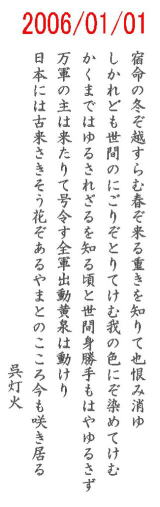 2006/01/01
宿命の冬ぞ越すらむ春ぞ来る重きを知りて也恨み消ゆ
しかれども世間のにごりぞとりてけむ我の色にぞ染めてけむ
かくまではゆるされざるを知る頃と世間身勝手もはやゆるさず
万軍の主は来たりて号令す全軍出動黄泉は動けり
日本には古来さきそう花ぞあるやまとのこころ今も咲き居る
呉灯火